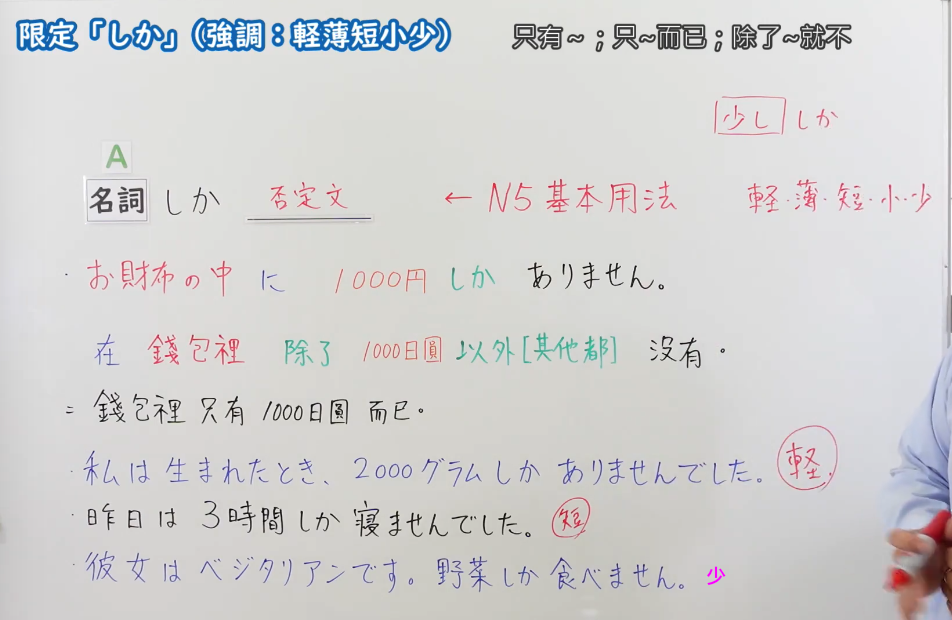 限定「しか」（強調：軽薄短小少） 只有～；只~而已；除了~就不
少し しか
A
名詞 しか 否定文 ← N5 基本用法 軽・薄・短・小・少
・お財布の中 に 1000円 しか ありません。
在 錢包裡 除了 1000日圓 以外[其他都] 沒有。
= 錢包裡 只有 1000日圓 而已。
・私は 生まれたとき、2000グラムしか ありませんでした。 軽
・昨日は 3時間しか 寝ませんでした。 短
・彼女は ベジタリアンです。野菜しか 食べません。 少